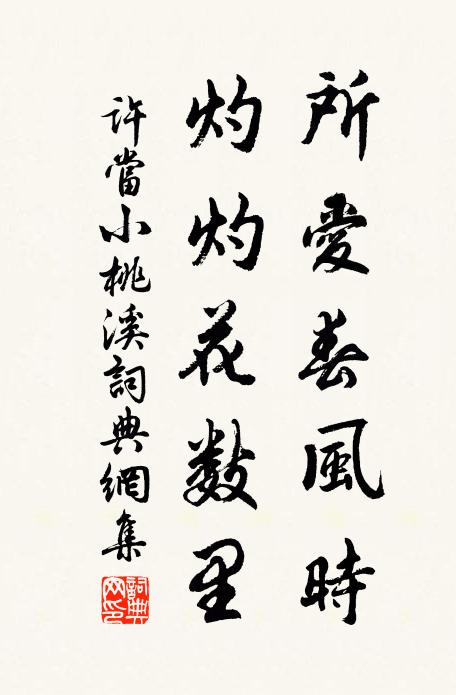 所愛春風時
灼灼花數里
許當小桃溪詞典網集
詞典網印